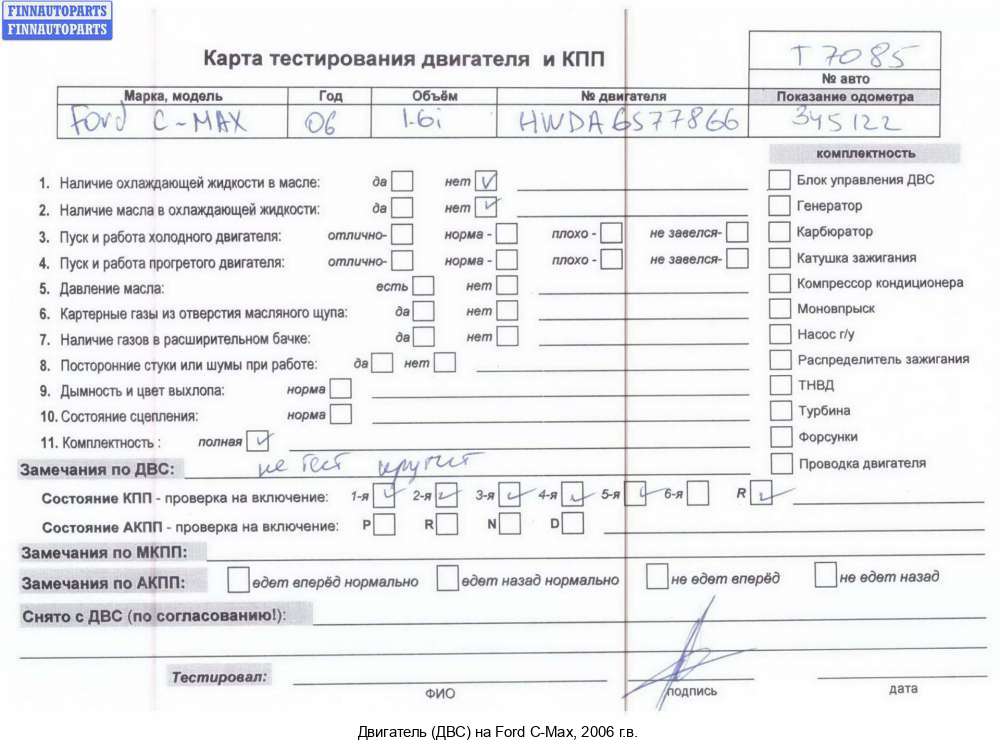 FINNAUTOPARTS
FINNAUTOPARTS
Карта тестирования двигателя и КПП
T 7085
№ авто
Марка, модель Год Объём № двигателя Показание одометра
Ford C-MAX 06 1.6i HWDA6S77866 345122
комплектность
1. Наличие охлаждающей жидкости в масле: да нет Блок управления ДВС
2. Наличие масла в охлаждающей жидкости: да нет Генератор
3. Пуск и работа холодного двигателя: отлично- норма - плохо - не завелся- Карбюратор
4. Пуск и работа прогретого двигателя: отлично- норма - плохо - не завелся- Катушка зажигания
5. Давление масла: есть нет Компрессор кондиционера
6. Картерные газы из отверстия масляного щупа: да нет Моновпрыск
7. Наличие газов в расширительном бачке: да нет Насос г/у
8. Посторонние стуки или шумы при работе: да нет Распределитель зажигания
9. Дымность и цвет выхлопа: норма ТНВД
10. Состояние сцепления: норма Турбина
11. Комплектность : полная Форсунки
Замечания по ДВС: не тест крутит Проводка двигателя
Состояние КПП - проверка на включение: 1-я 2-я 3-я 4-я 5-я 6-я R
Состояние АКПП - проверка на включение: P R N D
Замечания по МКПП:
Замечания по АКПП: едет вперёд нормально едет назад нормально не едет вперёд не едет назад
Снято с ДВС (по согласованию!):
Тестировал:
ФИО подпись дата
Двигатель (ДВС) на Ford C-Max, 2006 г.в.